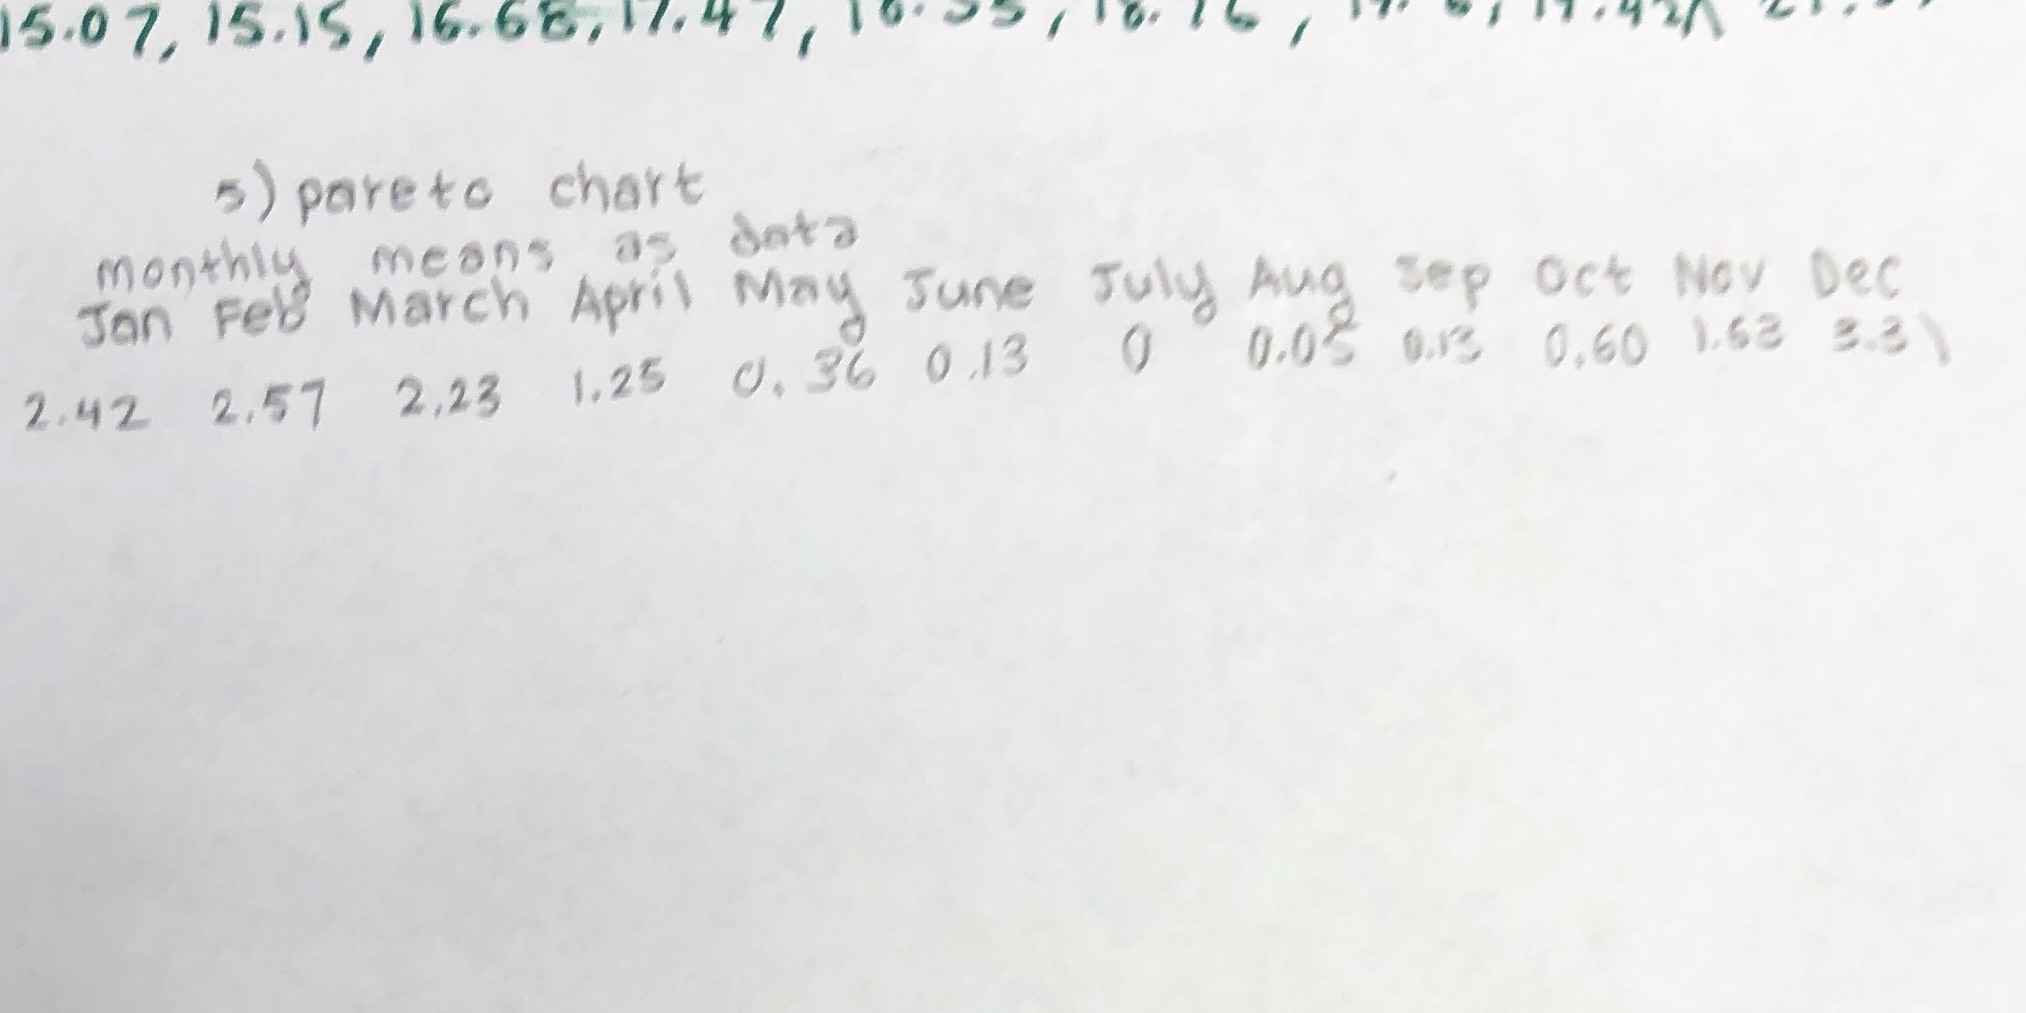 15.07, 15.15, 16.68, 17.47,
5) pareto chart
monthly means as data
Jan Feb March April May June July Aug Sep Oct Nov Dec
2.42 2.57 2.23 1.25 0.36 0.13 0 0.05 0.13 0.60 1.53 3.31